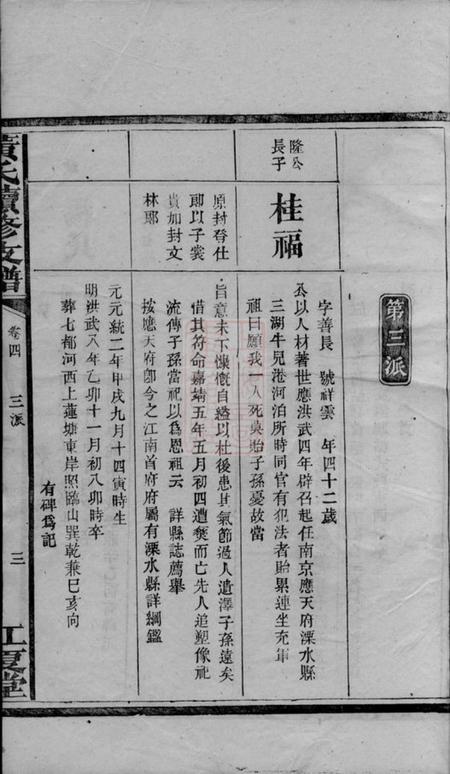 第三派
隆公
長子
桂福
原封登仕
郎以子裳
貴如封文
林郎
字善長　號祥雲　年四十二歲
公以人材著世應洪武四年辟召起任南京應天府溧水縣
三湖牛兒港河泊所時同官有犯法者貽累連坐充軍
祖曰願我一人死莫貽子孫憂故當
旨意未下慷慨自縊以杜後患其氣節過人遺澤子孫遠矣
惜其符命嘉靖五年五月初四遭燹而亡先人追塑像祀
流傳子孫當祀以為恩祖云　詳縣誌薦舉
按應天府卽今之江南首府府屬有溧水縣詳綱鑑
元元統二年甲戌九月十四寅時生
明洪武八年乙卯十一月初八卯時卒
葬七都河西上蓮塘東岸照臨山巽乾兼巳亥向
有碑為記
黃氏續修支譜
卷四　三派
三
江夏堂